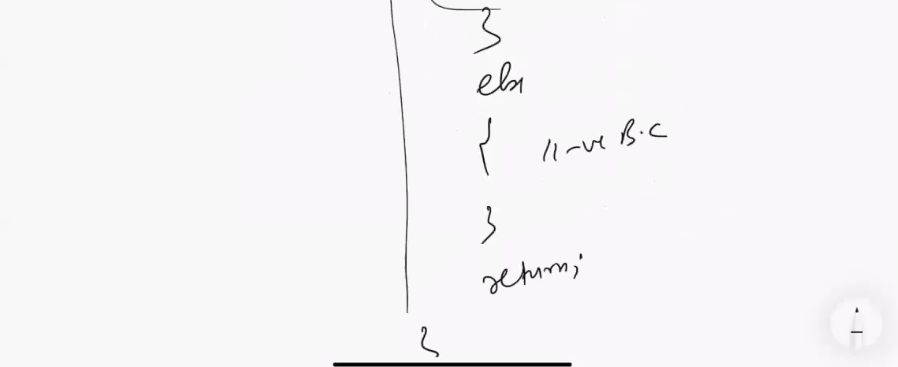 }
else
{ // -ve B.C
}
return;
}